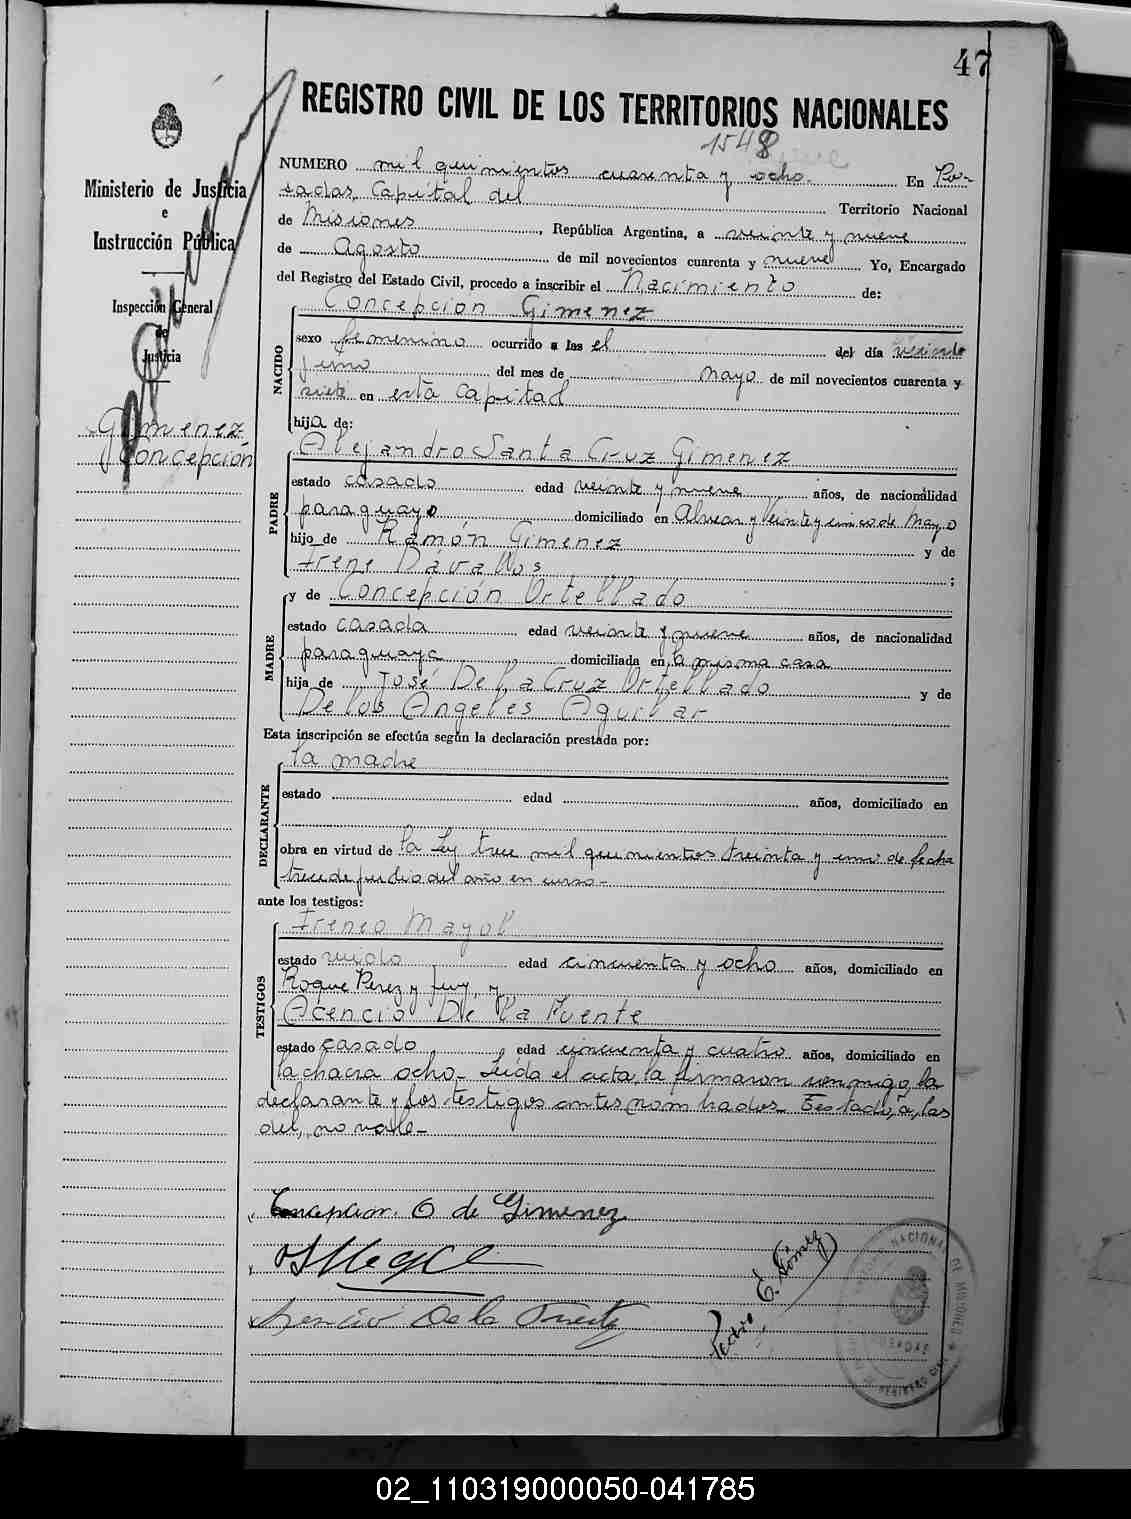 47
REGISTRO CIVIL DE LOS TERRITORIOS NACIONALES
1548
Ministerio de Justicia
e
Instrucción Pública
Inspección General
de
Justicia
Gimenez
Concepción
NUMERO mil quinientos cuarenta y ocho. En Po-
sadas, Capital del Territorio Nacional
de Misiones, República Argentina, a veinte y nueve
de Agosto de mil novecientos cuarenta y nueve Yo, Encargado
del Registro del Estado Civil, procedo a inscribir el Nacimiento de:
Concepción Gimenez
NACIDO
sexo femenino ocurrido a las el del día veinte
del mes de mayo de mil novecientos cuarenta y
siete en esta Capital
hija de:
Alejandro Santa Cruz Gimenez
PADRE
estado casado edad veinte y nueve años, de nacionalidad
paraguayo domiciliado en Alvear y Veinte y cinco de Mayo
hijo de Ramón Gimenez y de
Irene Dávallos ;
y de Concepción Ortellado
MADRE
estado casada edad veinte y nueve años, de nacionalidad
paraguaya domiciliada en la misma casa
hija de José De la Cruz Ortellado y de
De los Angeles Aguilar
Esta inscripción se efectúa según la declaración prestada por:
la madre
DECLARANTE
estado edad años, domiciliado en
obra en virtud de la Ley trece mil quinientos treinta y uno de fecha
trece de julio del año en curso-
ante los testigos:
Ireneo Mayol
TESTIGOS
estado viudo edad cincuenta y ocho años, domiciliado en
Roque Perez y Jujuy, y
Acencio De la Fuente
estado casado edad cincuenta y cuatro años, domiciliado en
la chacra ocho- Leida el acta, la firmaron conmigo, la
declarante y los testigos antes nombrados- Testado, a, las
del, no vale-
Concepcion O de Gimenez
Acencio De la Fuente
Pedro E. Gómez
02_110319000050-041785